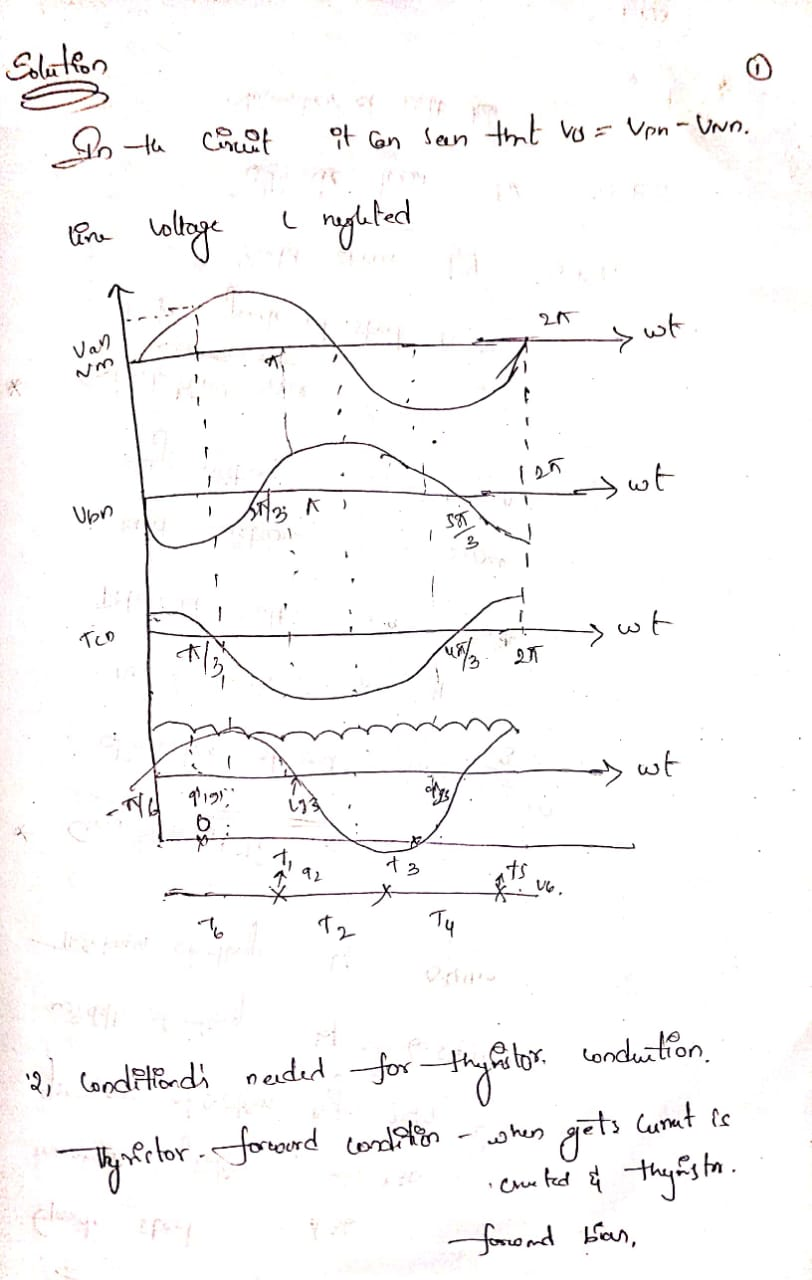 Solution
①
In the Circuit it can seen that V0 = Vpn - VNn.
line voltage is neglected
Van
Vm
π
2π
wt
Vbn
2π/3 π
5π/3
2π
wt
π/3
4π/3
2π
wt
-π/6
wt
0
T1 T3 T5
T6 T2 T4
2, Condition's needed for thyristor conduction.
Thyristor. forward condition - when gets Current is
& thyristor.
forward bias,